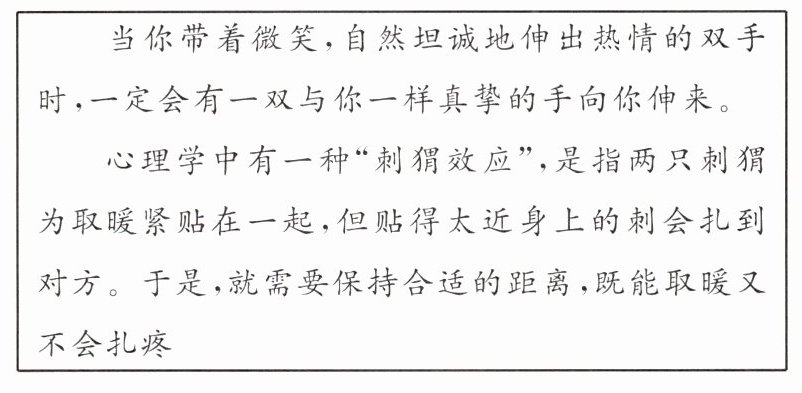 当你带着微笑,自然坦诚地伸出热情的双手
时,一定会有一双与你一样真挚的手向你伸来。
心理学中有一种“刺猬效应”,是指两只刺猬
为取暖紧贴在一起,但贴得太近身上的刺会扎到
对方。于是,就需要保持合适的距离,既能取暖又
不会扎疼